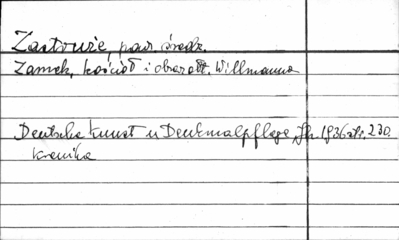 Zastruże, pow. średz.
Zamek, kościół i obraz ołt. Willmanna
Deutsche Kunst u Denkmalpflege, Jh. 1936 str. 230.
Kronika